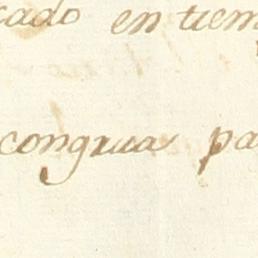 cado en tiem
congrua pa